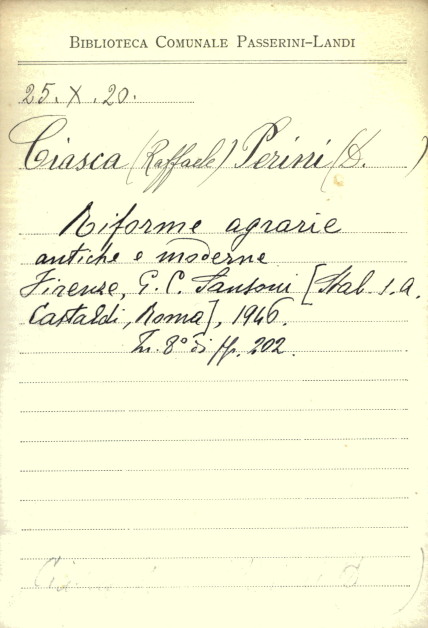 BIBLIOTECA COMUNALE PASSERINI-LANDI
25. X. 20.
Ciasca (Raffaele) Perini (D. )
Riforme agrarie
antiche e moderne
Firenze, G. C. Sansoni [Stab. S. A.
Castaldi, Roma], 1946.
In. 8° di pp. 202.